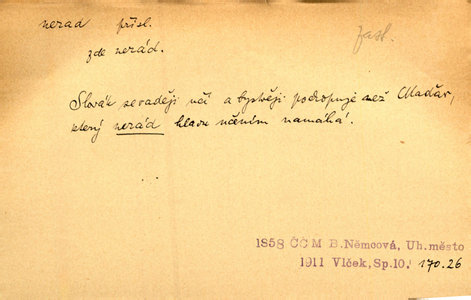 nerad přísl.
zast.
zde nerád.
Slovák se raději učí a bystřeji pochopuje než Maďar,
který nerád hlavu učením namáhá.
1858 ČČM B.Němcová, Uh.město
1911 Vlček, Sp.10, 170.26